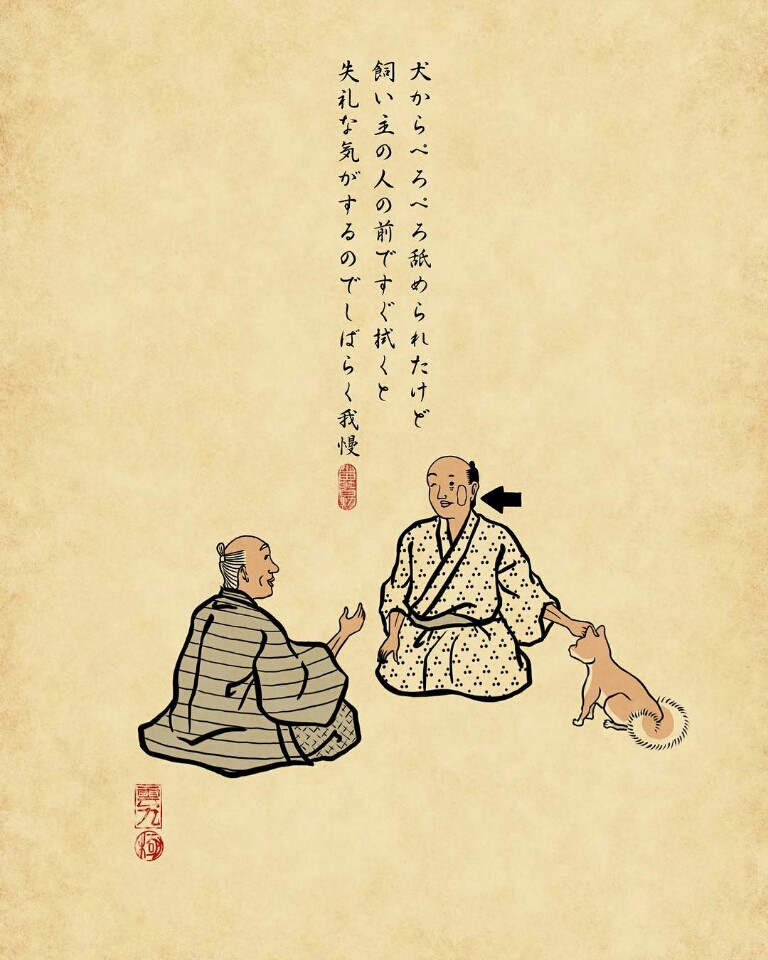 犬からぺろぺろ舐められたけど
飼い主の人の前ですぐ拭くと
失礼な気がするのでしばらく我慢